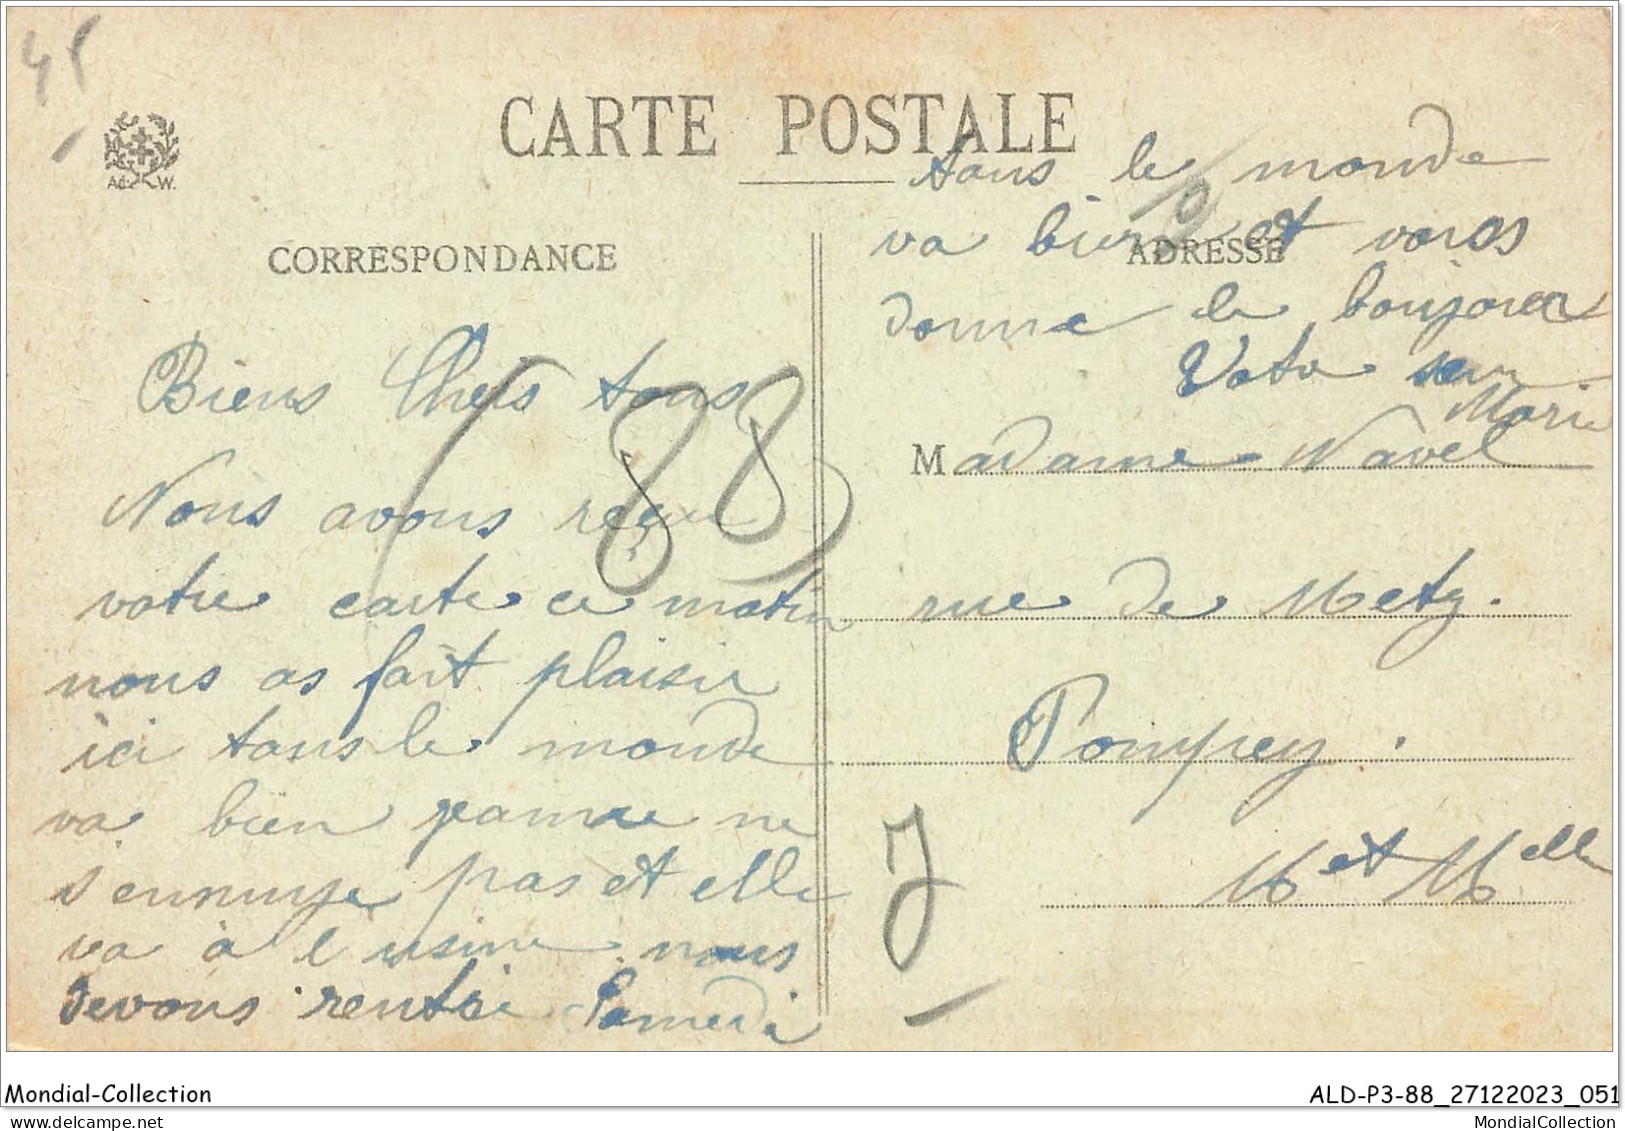 45
CARTE POSTALE
Ad. W.
CORRESPONDANCE
ADRESSE
88
Biens Chers tous
Nous avons reçu
votre carte ce matin
nous as fait plaisir
ici tous le monde
va bien jeanne ne
s'ennuye pas et elle
va à l'usine nous
devons rentré Samedi
tous le monde
va bien et vous
donne le bonjour
Votre sœur
Marie
Madame Navel
rue de Metz.
Pompey.
M et Melle
Mondial-Collection
ALD-P3-88_27122023_051
MondialCollection.com
MondialCollection